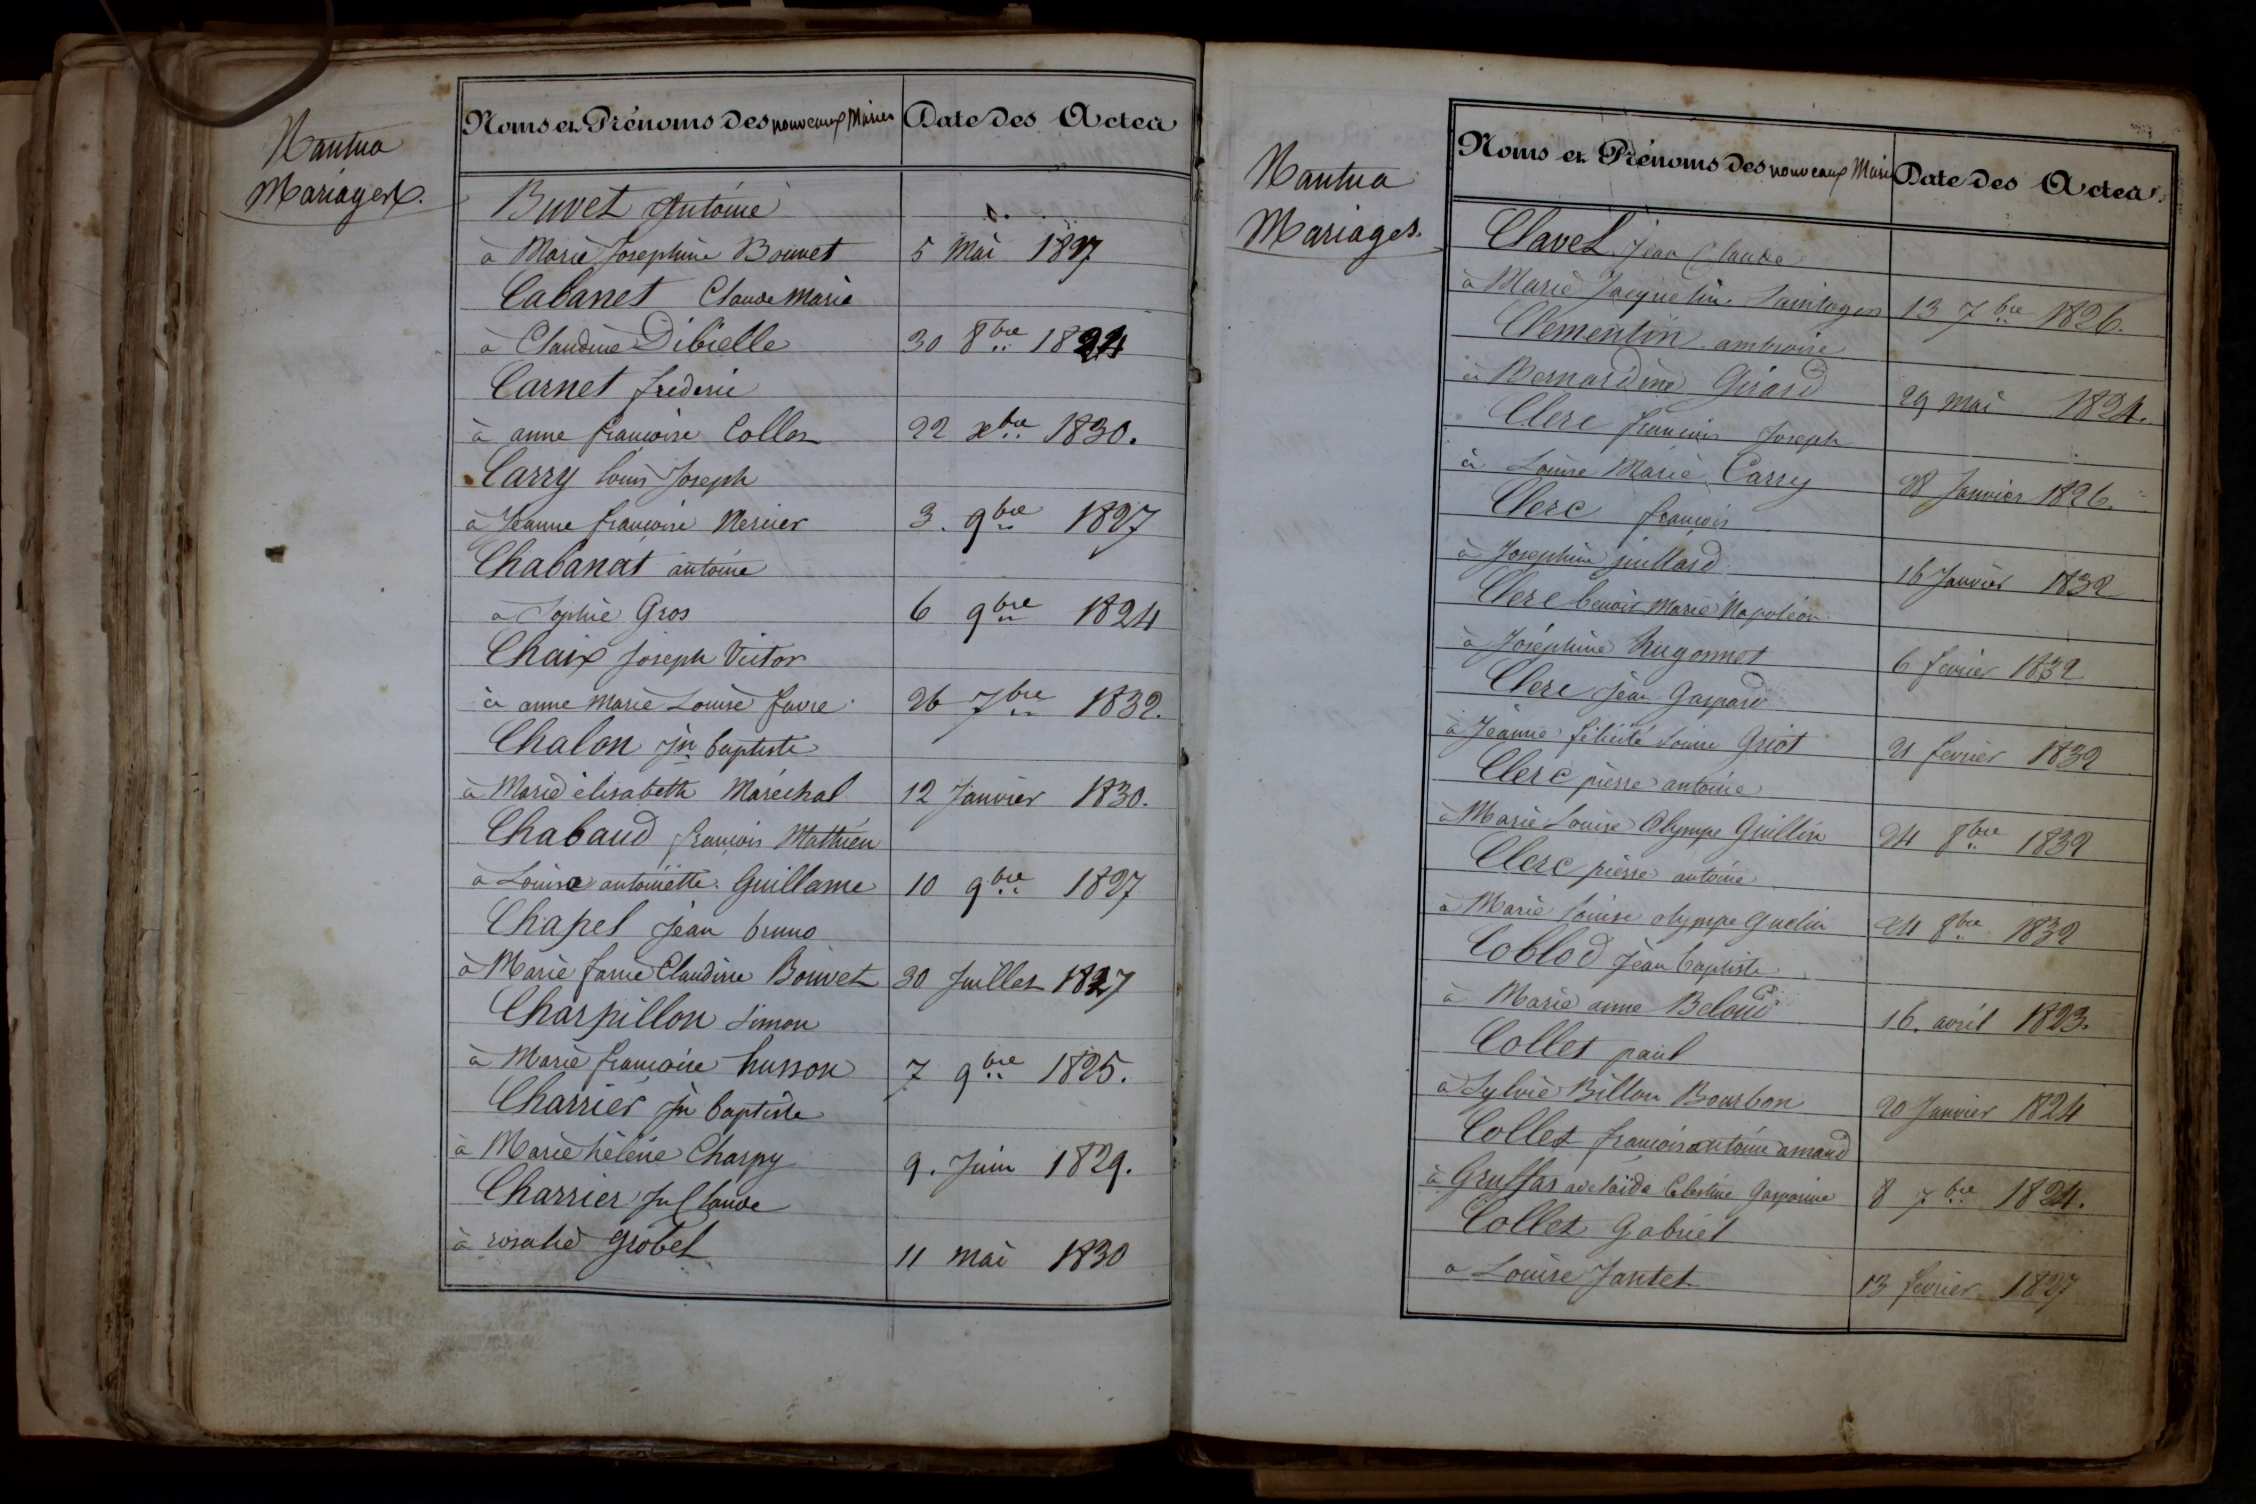 Nantua
Mariages.
Noms et Prénoms des nouveaux Mariés Date des Actes
Buvet Antoine
à Marie Josephine Bouvet 5 Mai 1827
Cabanet Claude Marie
à Claudine Dibielle 30 8bre 1824
Carnet frederic
à anne françoise Collet 22 xbre 1830.
Carry louis Joseph
à Jeanne françoise Mercier 3. 9bre 1827
Chabanat antoine
à Sophie Gros 6 9bre 1824
Chaix Joseph Victor
à anne Marie Louise favre 26 7bre 1832.
Chalon Jn baptiste
à Marie élisabeth Maréchal 12 Janvier 1830.
Chabaud françois Mathieu
à Louise antoinette Guillame 10 9bre 1827
Chapel Jean bruno
à Marie Claudine Bouvet 30 Juillet 1827
Charpillon Simon
à Marie françoise husson 7 9bre 1825.
Charrier Jn baptiste
à Marie hélène Charpy 9. Juin 1829.
Charrier Jn Claude
à rosalie grobel 11 mai 1830
Nantua
Mariages.
Noms et Prénoms des nouveaux Marié Date des Actes
Clavel Jean Claude
à Marie Jacqueline 13 7bre 1826.
Clementin ambroise
à Bernardine Girard 29 mai 1824.
Clerc françois Joseph
à Louise Marie Carry 28 Janvier 1826.
Clerc françois
à Josephine juillard 16 Janvier 1832
Clerc benoit Marie Napoléon
à Joséphine hugonnet 6 fevrier 1832
Clerc Jean Gaspard
à Jeanne félicité Louise Griot 21 fevrier 1832
Clerc pierre antoine
à Marie Louise Olympe Guillin 24 8bre 1832
Clerc pierre antoine
à Marie louise olympe guelin 24 8bre 1832
Coblod Jean baptiste
à Marie anne Beloud 16. avril 1823.
Collet paul
à Sylvie Billon Bourbon 20 Janvier 1824
Collet françois antoine amand
à Gruffas adelaïde Celestine Gasparine 8 7bre 1824.
Collet Gabriel
à Louise Jantet 13 fevrier 1827